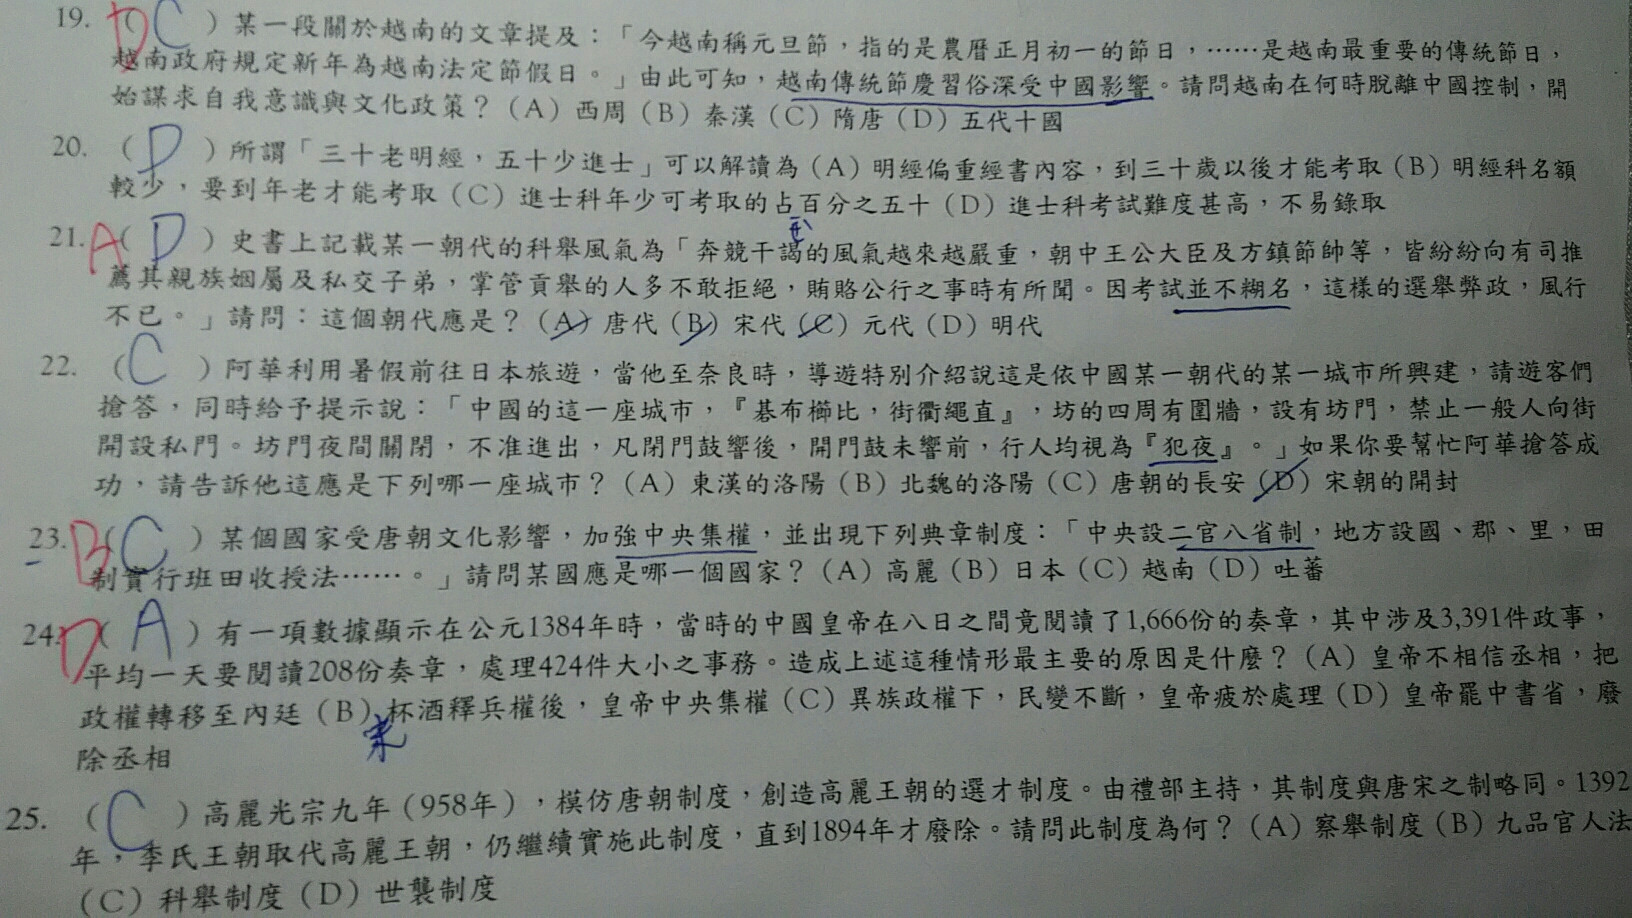 19. D ( C ) 某一段關於越南的文章提及：「今越南稱元旦節，指的是農曆正月初一的節日，……是越南最重要的傳統節日，
越南政府規定新年為越南法定節假日。」由此可知，越南傳統節慶習俗深受中國影響。請問越南在何時脫離中國控制，開
始謀求自我意識與文化政策？（A）西周（B）秦漢（C）隋唐（D）五代十國
20. ( D ) 所謂「三十老明經，五十少進士」可以解讀為（A）明經偏重經書內容，到三十歲以後才能考取（B）明經科名額
較少，要到年老才能考取（C）進士科年少可考取的占百分之五十（D）進士科考試難度甚高，不易錄取
21. A ( D ) 史書上記載某一朝代的科舉風氣為「奔競干謁的風氣越來越嚴重，朝中王公大臣及方鎮節帥等，皆紛紛向有司推
薦其親族姻屬及私交子弟，掌管貢舉的人多不敢拒絕，賄賂公行之事時有所聞。因考試並不糊名，這樣的選舉弊政，風行
不已。」請問：這個朝代應是？（A）唐代（B）宋代（C）元代（D）明代
22. ( C ) 阿華利用暑假前往日本旅遊，當他至奈良時，導遊特別介紹說這是依中國某一朝代的某一城市所興建，請遊客們
搶答，同時給予提示說：「中國的這一座城市，『碁布櫛比，街衢繩直』，坊的四周有圍牆，設有坊門，禁止一般人向街
開設私門。坊門夜間關閉，不准進出，凡閉門鼓響後，開門鼓未響前，行人均視為『犯夜』。」如果你要幫忙阿華搶答成
功，請告訴他這應是下列哪一座城市？（A）東漢的洛陽（B）北魏的洛陽（C）唐朝的長安（D）宋朝的開封
23. B ( C ) 某個國家受唐朝文化影響，加強中央集權，並出現下列典章制度：「中央設二官八省制，地方設國、郡、里，田
制實行班田收授法……。」請問某國應是哪一個國家？（A）高麗（B）日本（C）越南（D）吐蕃
24. D ( A ) 有一項數據顯示在公元1384年時，當時的中國皇帝在八日之間竟閱讀了1,666份的奏章，其中涉及3,391件政事，
平均一天要閱讀208份奏章，處理424件大小之事務。造成上述這種情形最主要的原因是什麼？（A）皇帝不相信丞相，把
政權轉移至內廷（B）杯酒釋兵權後，皇帝中央集權（C）異族政權下，民變不斷，皇帝疲於處理（D）皇帝罷中書省，廢
宋
除丞相
25. ( C ) 高麗光宗九年（958年），模仿唐朝制度，創造高麗王朝的選才制度。由禮部主持，其制度與唐宋之制略同。1392
年，李氏王朝取代高麗王朝，仍繼續實施此制度，直到1894年才廢除。請問此制度為何？（A）察舉制度（B）九品官人法
（C）科舉制度（D）世襲制度